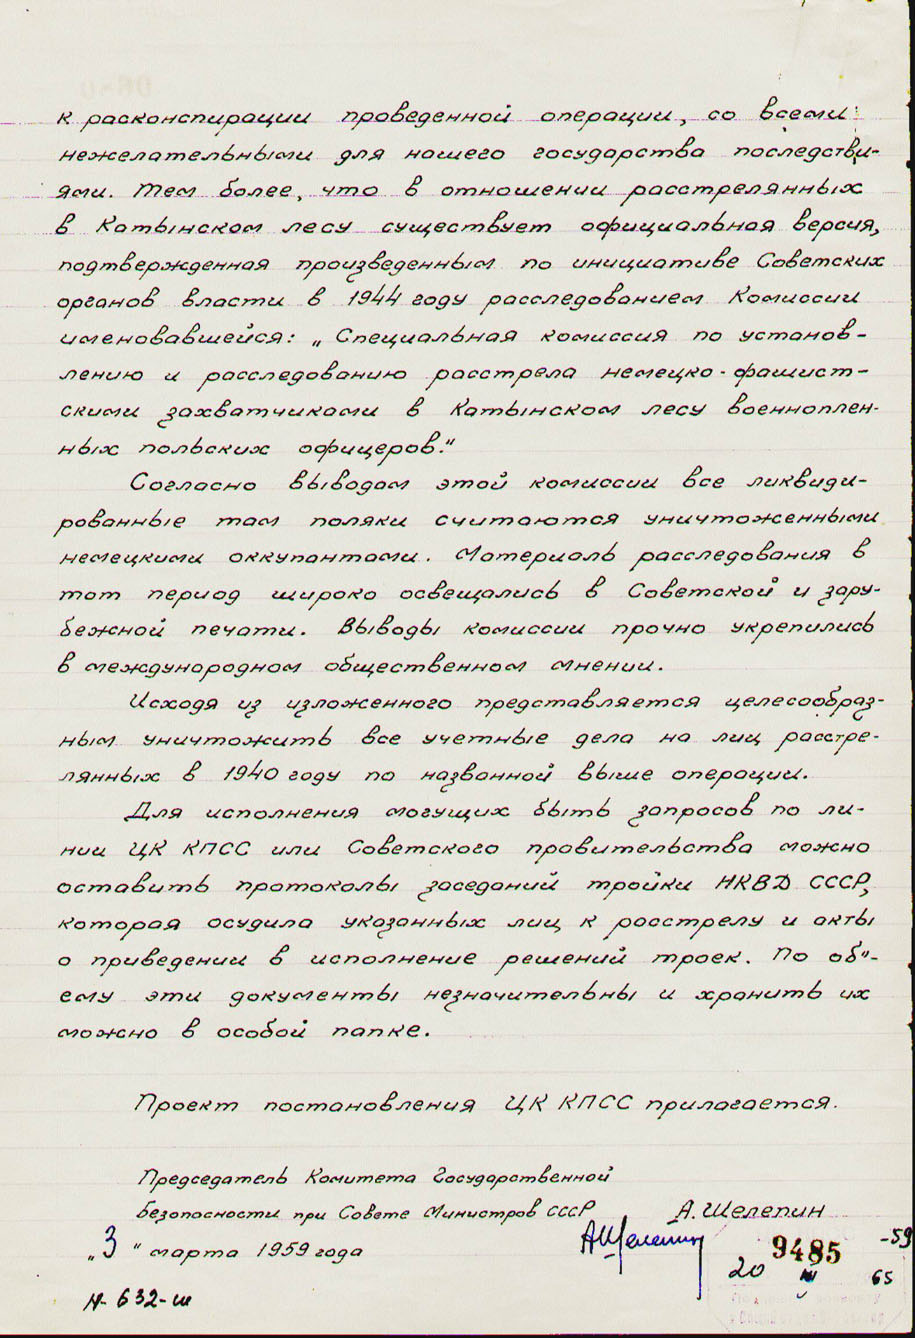 к расконспирации проведенной операции, со всеми
нежелательными для нашего государства последстви-
ями. Тем более, что в отношении расстрелянных
в Катынском лесу существует официальная версия,
подтвержденная произведенным по инициативе Советских
органов власти в 1944 году расследованием Комиссии
именовавшейся: „Специальная комиссия по установ-
лению и расследованию расстрела немецко-фашист-
скими захватчиками в Катынском лесу военноплен-
ных польских офицеров."
Согласно выводам этой комиссии все ликвиди-
рованные там поляки считаются уничтоженными
немецкими оккупантами. Материалы расследования в
тот период широко освещались в Советской и зару-
бежной печати. Выводы комиссии прочно укрепились
в международном общественном мнении.
Исходя из изложенного представляется целесообраз-
ным уничтожить все учетные дела на лиц расстре-
лянных в 1940 году по названной выше операции.
Для исполнения могущих быть запросов по ли-
нии ЦК КПСС или Советского правительства можно
оставить протоколы заседаний тройки НКВД СССР,
которая осудила указанных лиц к расстрелу и акты
о приведении в исполнение решений троек. По об"-
ему эти документы незначительны и хранить их
можно в особой папке.
Проект постановления ЦК КПСС прилагается.
Председатель Комитета Государственной
безопасности при Совете Министров СССР А. Шелепин
„3" марта 1959 года АШелепин
9485 -59
20 III 65
Н-632-ш